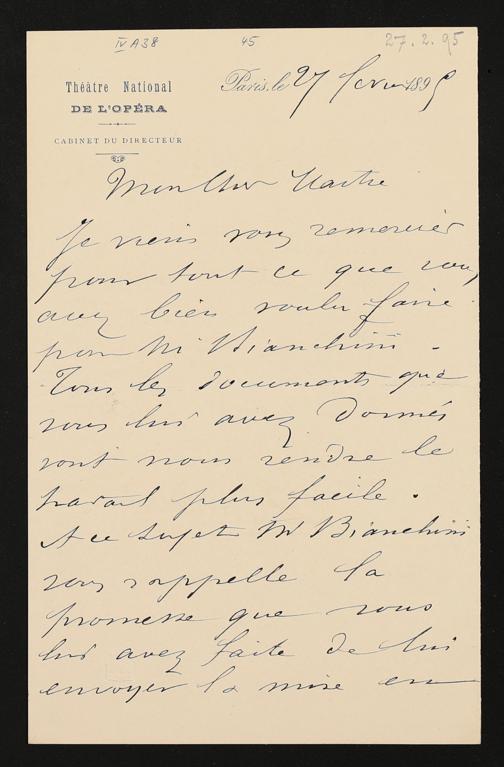 IV A 38 45 27.2.95
Théâtre National
DE L'OPÉRA
CABINET DU DIRECTEUR
Paris, le 27 fevrier 1895
Mon Cher Maitre
Je viens vous remercier
pour tout ce que vous
avez bien voulu faire
pour Mr Bianchini.
Tous les documents que
vous lui avez donnés
vont nous rendre le
travail plus facile.
A ce sujet Mr Bianchini
vous rappelle la
promesse que vous
lui avez faite de lui
envoyer la mise en